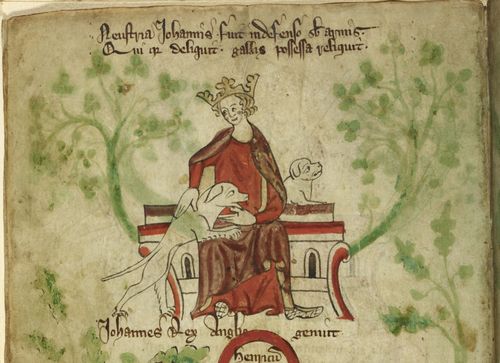 Neustria Johannis fuit indefenso sb armis.
Qui qr deliquit. gallis possessa reliquit.
Johannes Rex Anglie genuit
Henricu